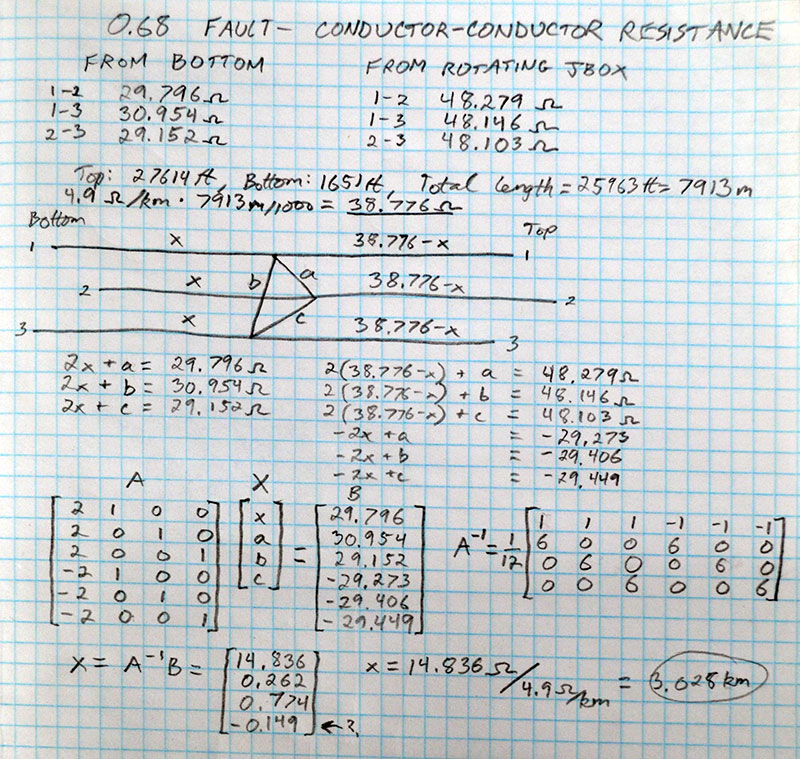 0.68 FAULT- CONDUCTOR-CONDUCTOR RESISTANCE
FROM BOTTOM FROM ROTATING JBOX
1-2 29.796Ω 1-2 48.279 Ω
1-3 30.954Ω 1-3 48.146 Ω
2-3 29.152Ω 2-3 48.103 Ω
Top: 27614 ft, Bottom: 1651 ft, Total length = 25963 ft = 7913 m
4.9 Ω/km · 7913m/1000 = 38.776Ω
Bottom Top
1 x 38.776-x 1
2 x b a 38.776-x 2
3 x c 38.776-x 3
2x + a = 29.796Ω 2(38.776-x) + a = 48.279Ω
2x + b = 30.954Ω 2(38.776-x) + b = 48.146 Ω
2x + c = 29.152Ω 2(38.776-x) + c = 48.103 Ω
-2x + a = -29.273
-2x + b = -29.406
-2x + c = -29.449
A X B
2 1 0 0 x 29.796 1 1 1 -1 -1 -1
2 0 1 0 a 30.954 6 0 0 6 0 0
2 0 0 1 b = 29.152 A⁻¹ = 1/12 0 6 0 0 6 0
-2 1 0 0 c -29.273 0 0 6 0 0 6
-2 0 1 0 -29.406
-2 0 0 1 -29.449
X = A⁻¹B = 14.836 x = 14.836 Ω / 4.9 Ω/km = 3.028 km
0.262
0.774
-0.149 ← ?